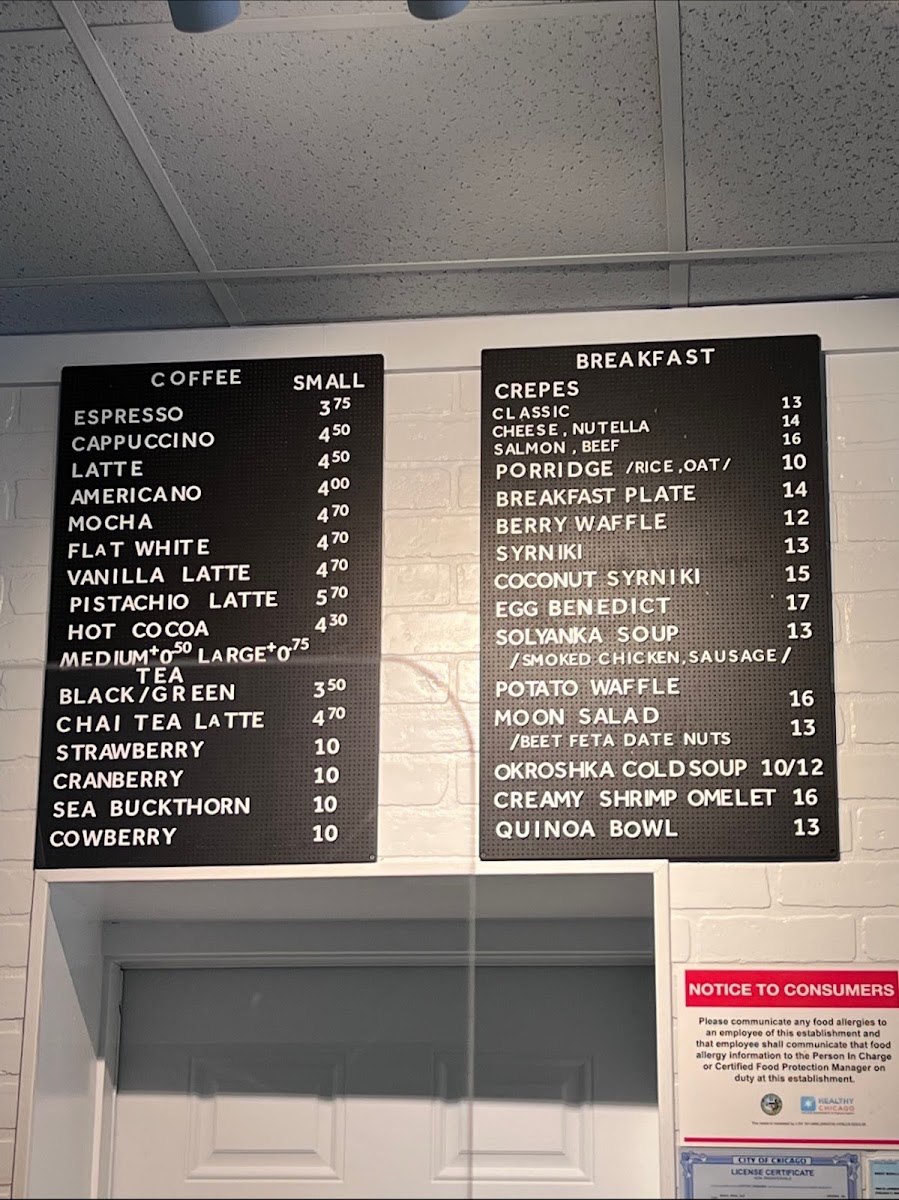 COFFEE SMALL
ESPRESSO 3.75
CAPPUCCINO 4.50
LATTE 4.50
AMERICANO 4.00
MOCHA 4.70
FLAT WHITE 4.70
VANILLA LATTE 4.70
PISTACHIO LATTE 5.70
HOT COCOA 4.30
MEDIUM+0.50 LARGE+0.75
TEA
BLACK/GREEN 3.50
CHAI TEA LATTE 4.70
STRAWBERRY 10
CRANBERRY 10
SEA BUCKTHORN 10
COWBERRY 10
BREAKFAST
CREPES
CLASSIC 13
CHEESE, NUTELLA 14
SALMON, BEEF 16
PORRIDGE /RICE,OAT/ 10
BREAKFAST PLATE 14
BERRY WAFFLE 12
SYRNIKI 13
COCONUT SYRNIKI 15
EGG BENEDICT 17
SOLYANKA SOUP 13
/SMOKED CHICKEN, SAUSAGE/
POTATO WAFFLE 16
MOON SALAD 13
/BEET FETA DATE NUTS
OKROSHKA COLD SOUP 10/12
CREAMY SHRIMP OMELET 16
QUINOA BOWL 13
NOTICE TO CONSUMERS
Please communicate any food allergies to
an employee of this establishment and
that employee shall communicate that food
allergy information to the Person In Charge
or Certified Food Protection Manager on
duty at this establishment.
HEALTHY
CHICAGO
CITY OF CHICAGO
LICENSE CERTIFICATE